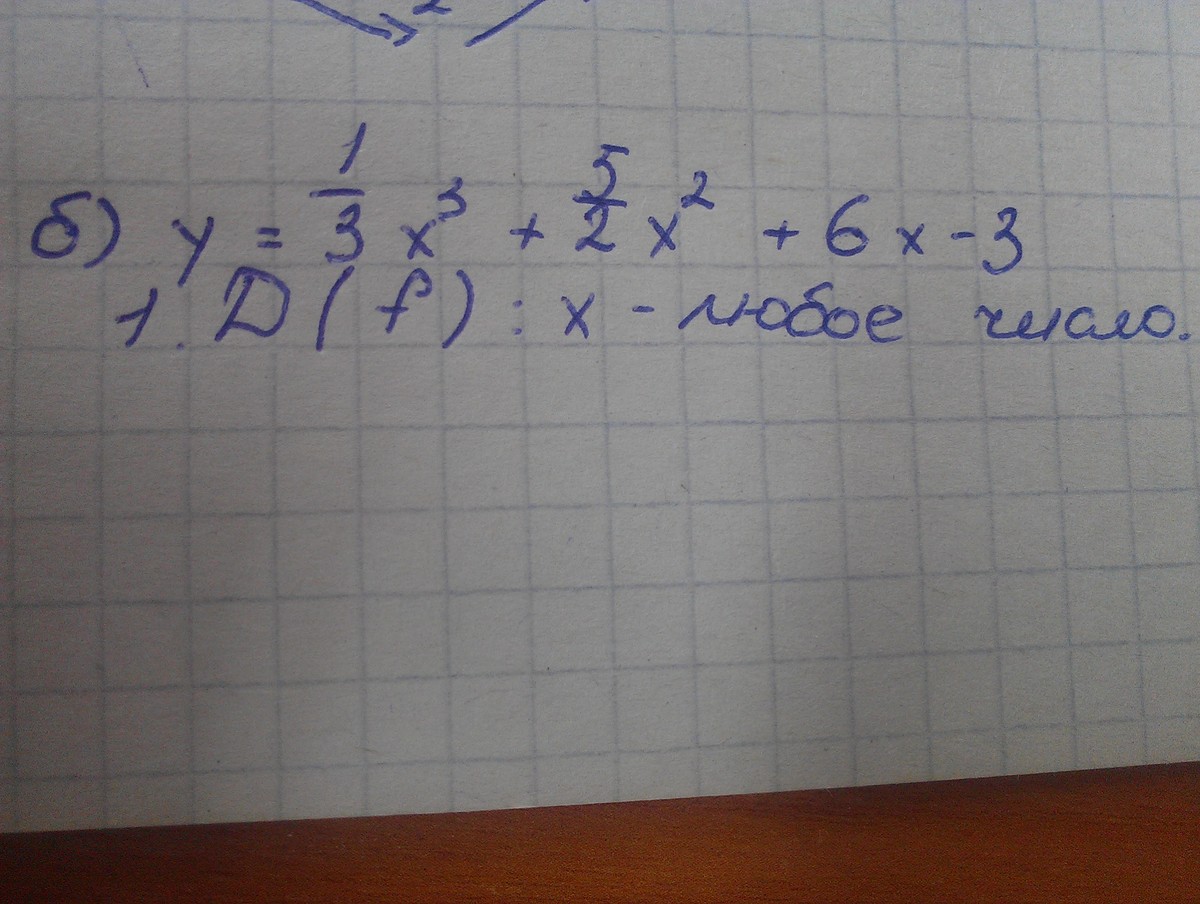 2
б) y = 1/3 x³ + 5/2 x² + 6x - 3
1. D(f): x - любое число.